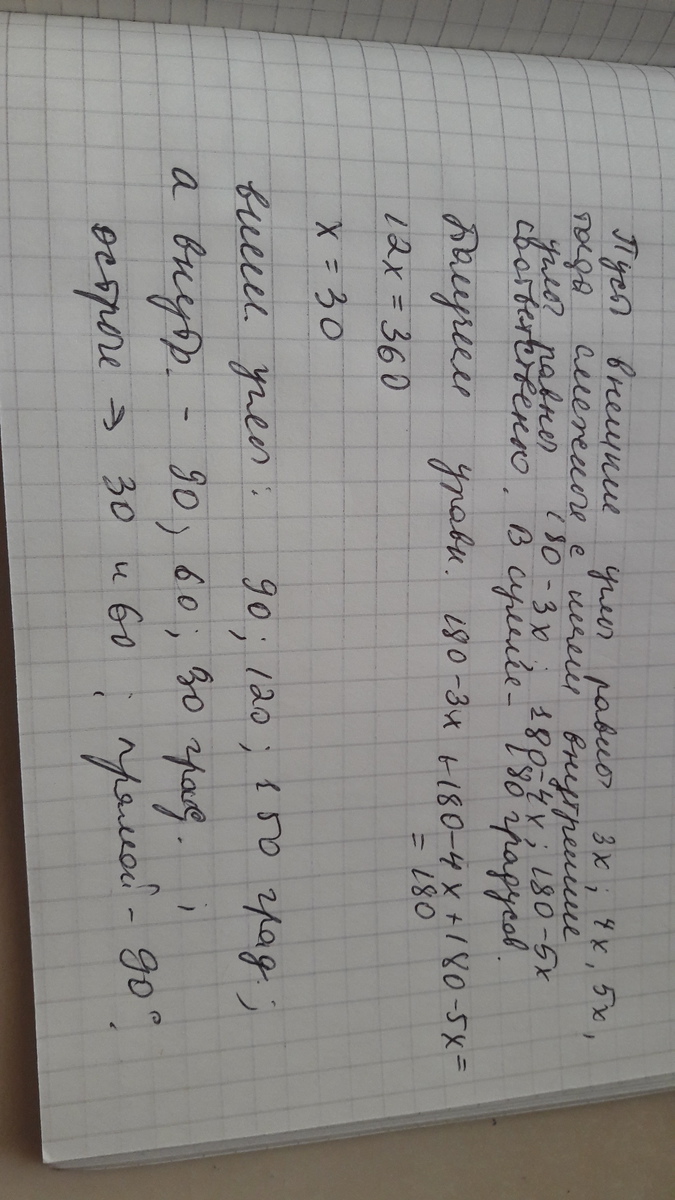 Пусть внешние углы равны 3x; 4x, 5x,
тогда смежные с ними внутренние
углы равны 180-3x; 180-4x; 180-5x
соответственно. В сумме - 180 градусов.
Получим уравн. 180-3x+180-4x+180-5x=
=180
12x=360
x=30
внеш. углы: 90; 120; 150 град.;
а внутр. - 90; 60; 30 град. ;
острые ⇒ 30 и 60; прямой - 90°.